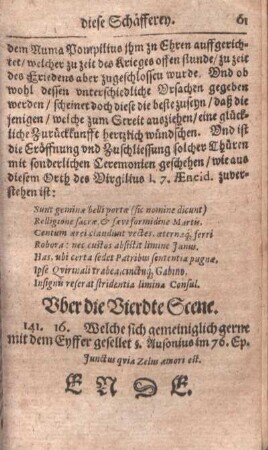 diese Schäfferey. 61
dem Numa Pompilius jhm zu Ehren auffgerich-
tet / welcher zu zeit des Krieges offen stunde / zu zeit
des Friedens aber zugeschlossen wurde. Und ob
wohl dessen unterschiedliche Ursachen gegeben
werden / scheinet doch diese die beste zuseyn / daß die
jenigen / welche zum Streit ausziehen / eine glück-
liche Zurückkunfft hertzlich wündschen. Und ist
die Eröffnung und Zuschliessung solcher Thüren
mit sonderlichen Ceremonien geschehen / wie aus
diesem Orth des Virgilius l. 7. Æneid. zuver-
stehen ist:
Sunt geminæ belli portæ (sic nomine dicunt)
Relligione sacræ, & sævi formidine Martis.
Centum ærei claudunt vectes, æternaq; ferri
Robora: nec custos absistit limine Janus.
Has, ubi certa sedet Patribus sententia pugnæ,
Ipse Qvirinali trabea, cinctuq; Gabino,
Insignis reserat stridentia limina Consul.
Vber die Vierdte Scene.
141. 16. Welche sich gemeiniglich gerne
mit dem Eyffer gesellet s. Ausonius im 76. Ep.
Junctus qvia Zelus amori est.
E N D E.